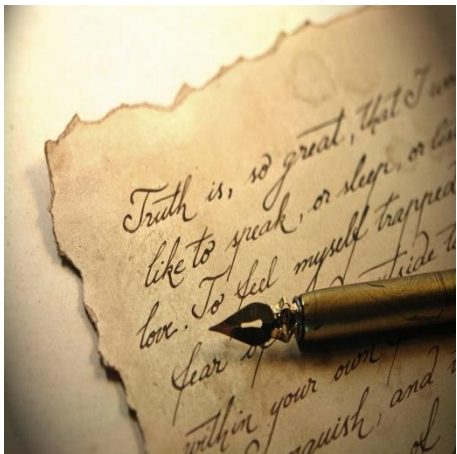 Truth is, so great, that I
like to speak, or sleep, or
love. To feel myself trapped
fear outside
within your own
anguish, and
of